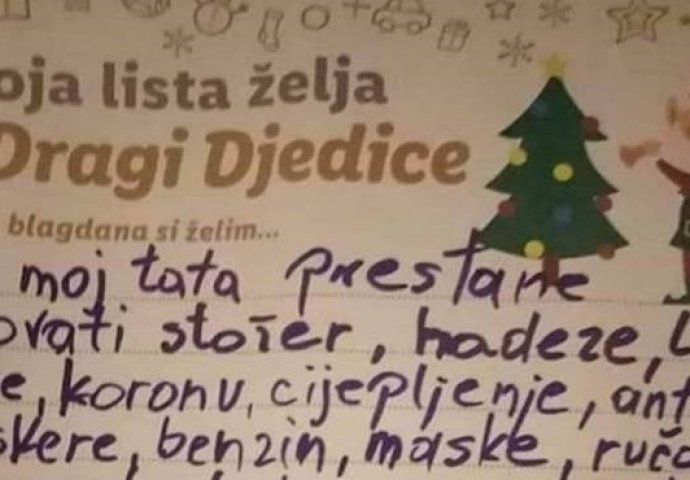 oja lista želja
Dragi Djedice
blagdana si želim...
moj tata prestane
ovati stožer, hadeze,
e, koronu, cijepljenje, ant
skere, benzin, maske, ruč